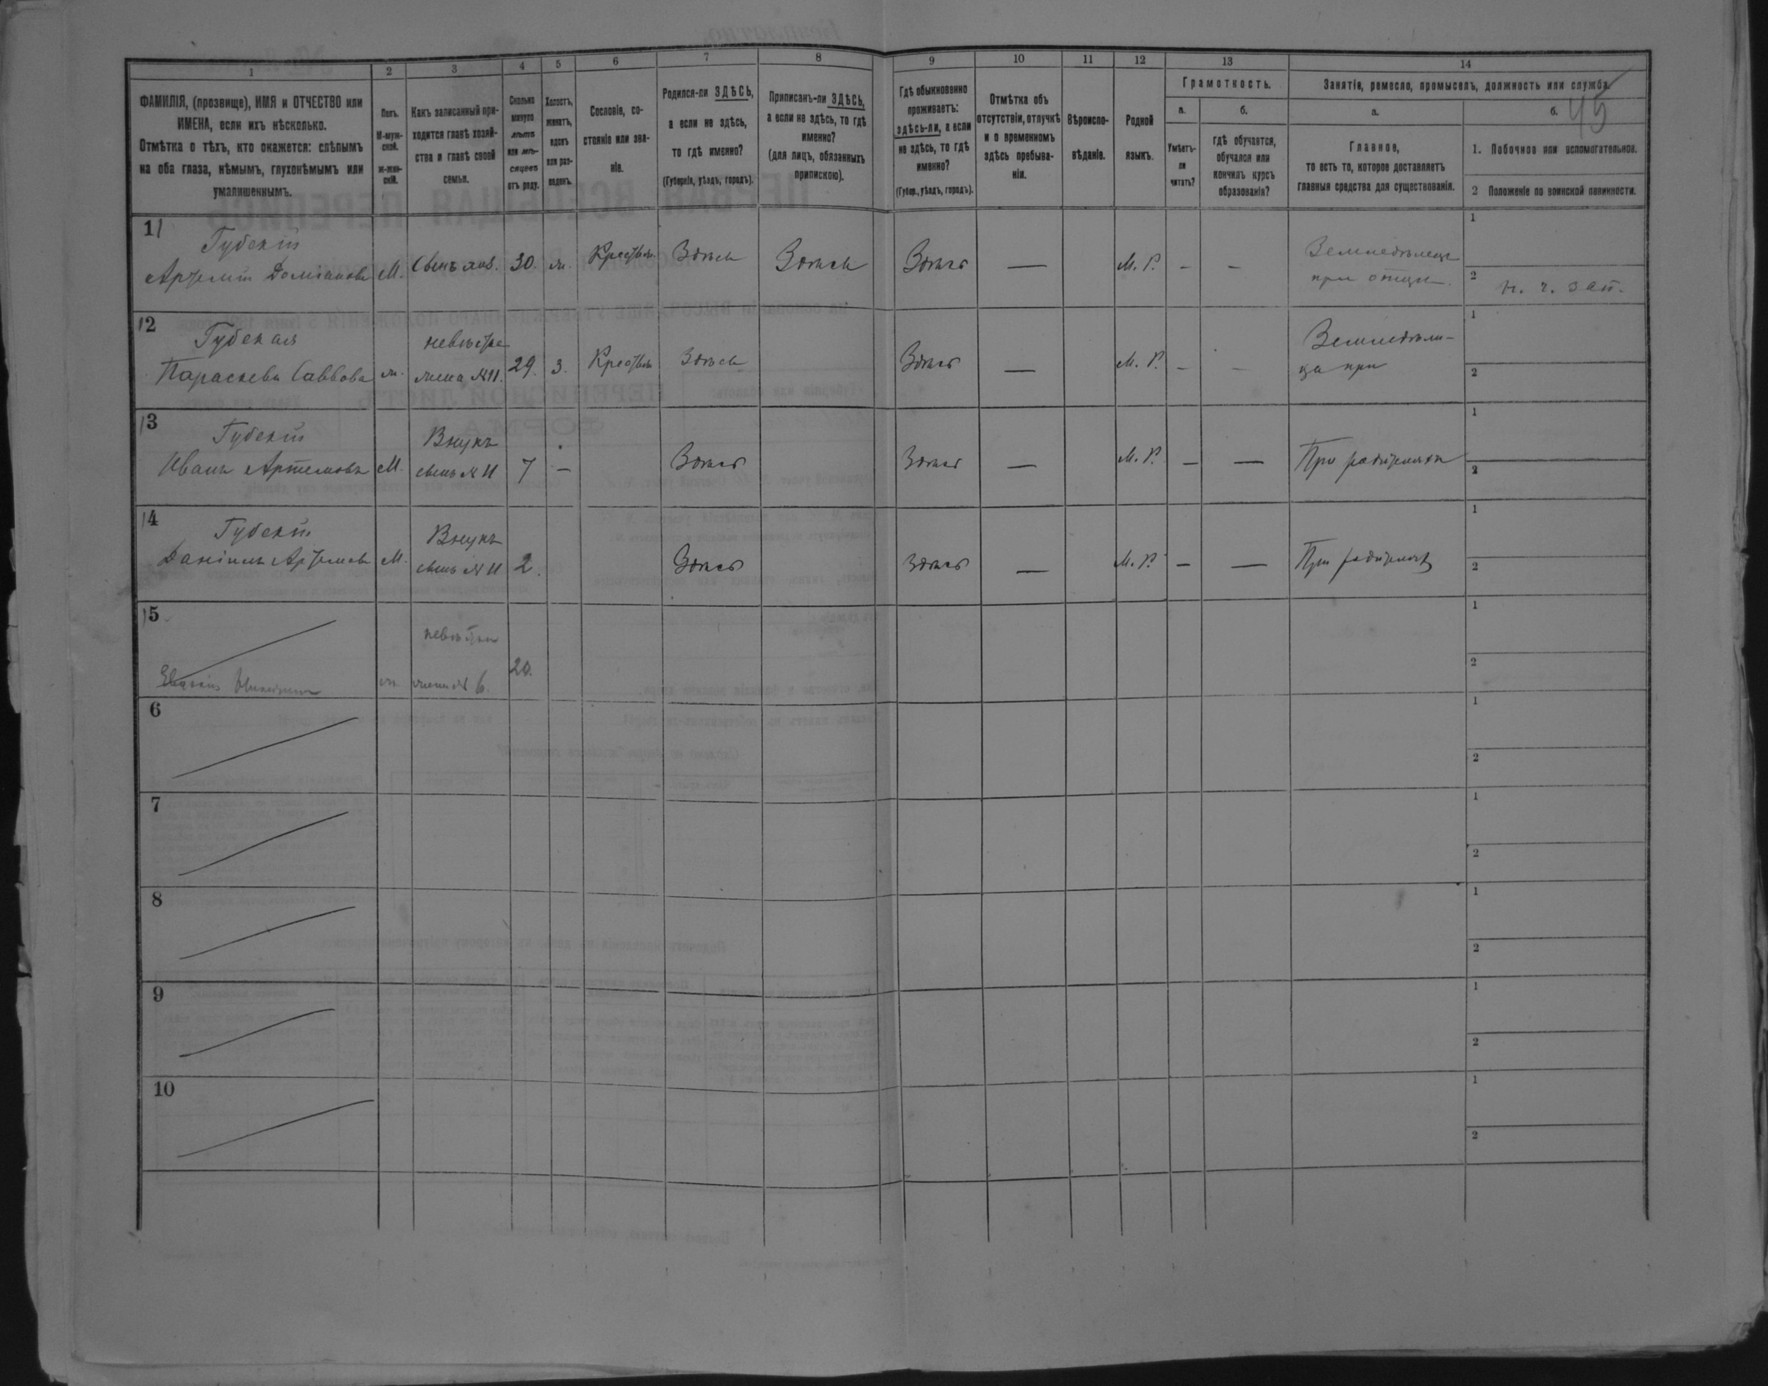 45
1
ФАМИЛІЯ, (прозвище), ИМЯ и ОТЧЕСТВО или
ИМЕНА, если ихъ нѣсколько.
Отмѣтка о тѣхъ, кто окажется: слѣпымъ
на оба глаза, нѣмымъ, глухонѣмымъ или
умалишеннымъ.
2
Полъ.
М-муж-
ской.
ж-жен-
скій.
3
Какъ записанный при-
ходится главѣ хозяй-
ства и главѣ своей
семьи.
4
Сколько
минуло
лѣтъ
или мѣ-
сяцевъ
отъ роду.
5
Холостъ,
женатъ,
вдовъ
или раз-
веденъ.
6
Сословіе, со-
стояніе или зва-
ніе.
7
Родился-ли ЗДѢСЬ,
а если не здѣсь,
то гдѣ именно?
(Губернія, уѣздъ, городъ).
8
Приписанъ-ли ЗДѢСЬ,
а если не здѣсь, то гдѣ
именно?
(для лицъ, обязанныхъ
припискою).
9
Гдѣ обыкновенно
проживаетъ:
здѣсь-ли, а если
не здѣсь, то гдѣ
именно?
(Губер., уѣздъ, городъ).
10
Отмѣтка объ
отсутствіи, отлучкѣ
и о временномъ
здѣсь пребыва-
ніи.
11
Вѣроиспо-
вѣданіе.
12
Родной
языкъ.
13
Грамотность.
а.
Умѣетъ-
ли
читать?
б.
гдѣ обучается,
обучался или
кончилъ курсъ
образованія?
14
Занятіе, ремесло, промыселъ, должность или служба.
а.
Главное,
то есть то, которое доставляетъ
главныя средства для существованія.
б.
1. Побочное или вспомогательное.
2 Положеніе по воинской повинности.
11
Губскій
Артемій Доміановъ М. сынъ хоз. 30. ж. Крестьян. Здѣсь Здѣсь Здѣсь — М. Р. - -
Земледѣлецъ
при отцѣ.
1
2 н. ч. зап.
12
Губская
Параскева Саввова ж.
невѣстка
жена №11. 29. з. Крестьян Здѣсь Здѣсь — М. Р. - -
Земледѣли-
ца при
1
2
13
Губскій
Иванъ Артемовъ М.
Внукъ
сынъ №11 7 — Здѣсь Здѣсь — М. Р. — — При родителяхъ
1
2
14
Губскій
Даніилъ Артемовъ М.
Внукъ
сынъ №11 2. Здѣсь Здѣсь — М. Р. — — При родителяхъ
1
2
15
невѣстка
ж. 6. 20.
1
2
6
1
2
7
1
2
8
1
2
9
1
2
10
1
2